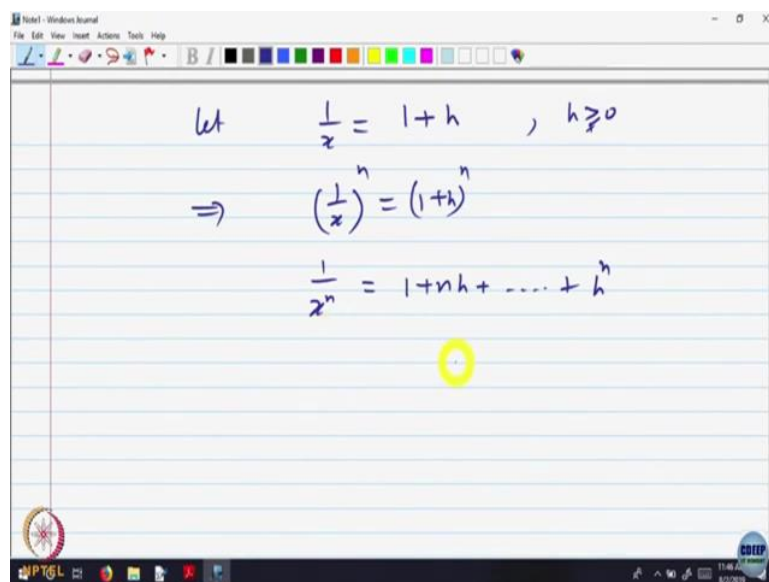 Note1 - Windows Journal
File Edit View Insert Actions Tools Help
B I
let 1/x = 1 + h , h ≥ 0
⇒ (1/x)^n = (1 + h)^n
1/x^n = 1 + nh + .... + h^n
NPTEL
CDEEP
11:46 A